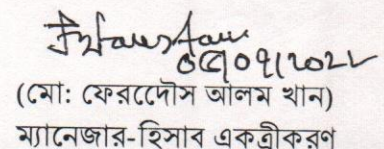 ০৫/০৭/২০২২
(মো: ফেরদৌস আলম খান)
ম্যানেজার-হিসাব একত্রীকরণ